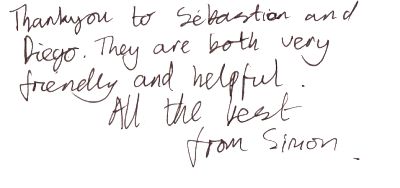 Thankyou to Sébastian and
Diego. They are both very
friendly and helpful.
All the best
from Simon.